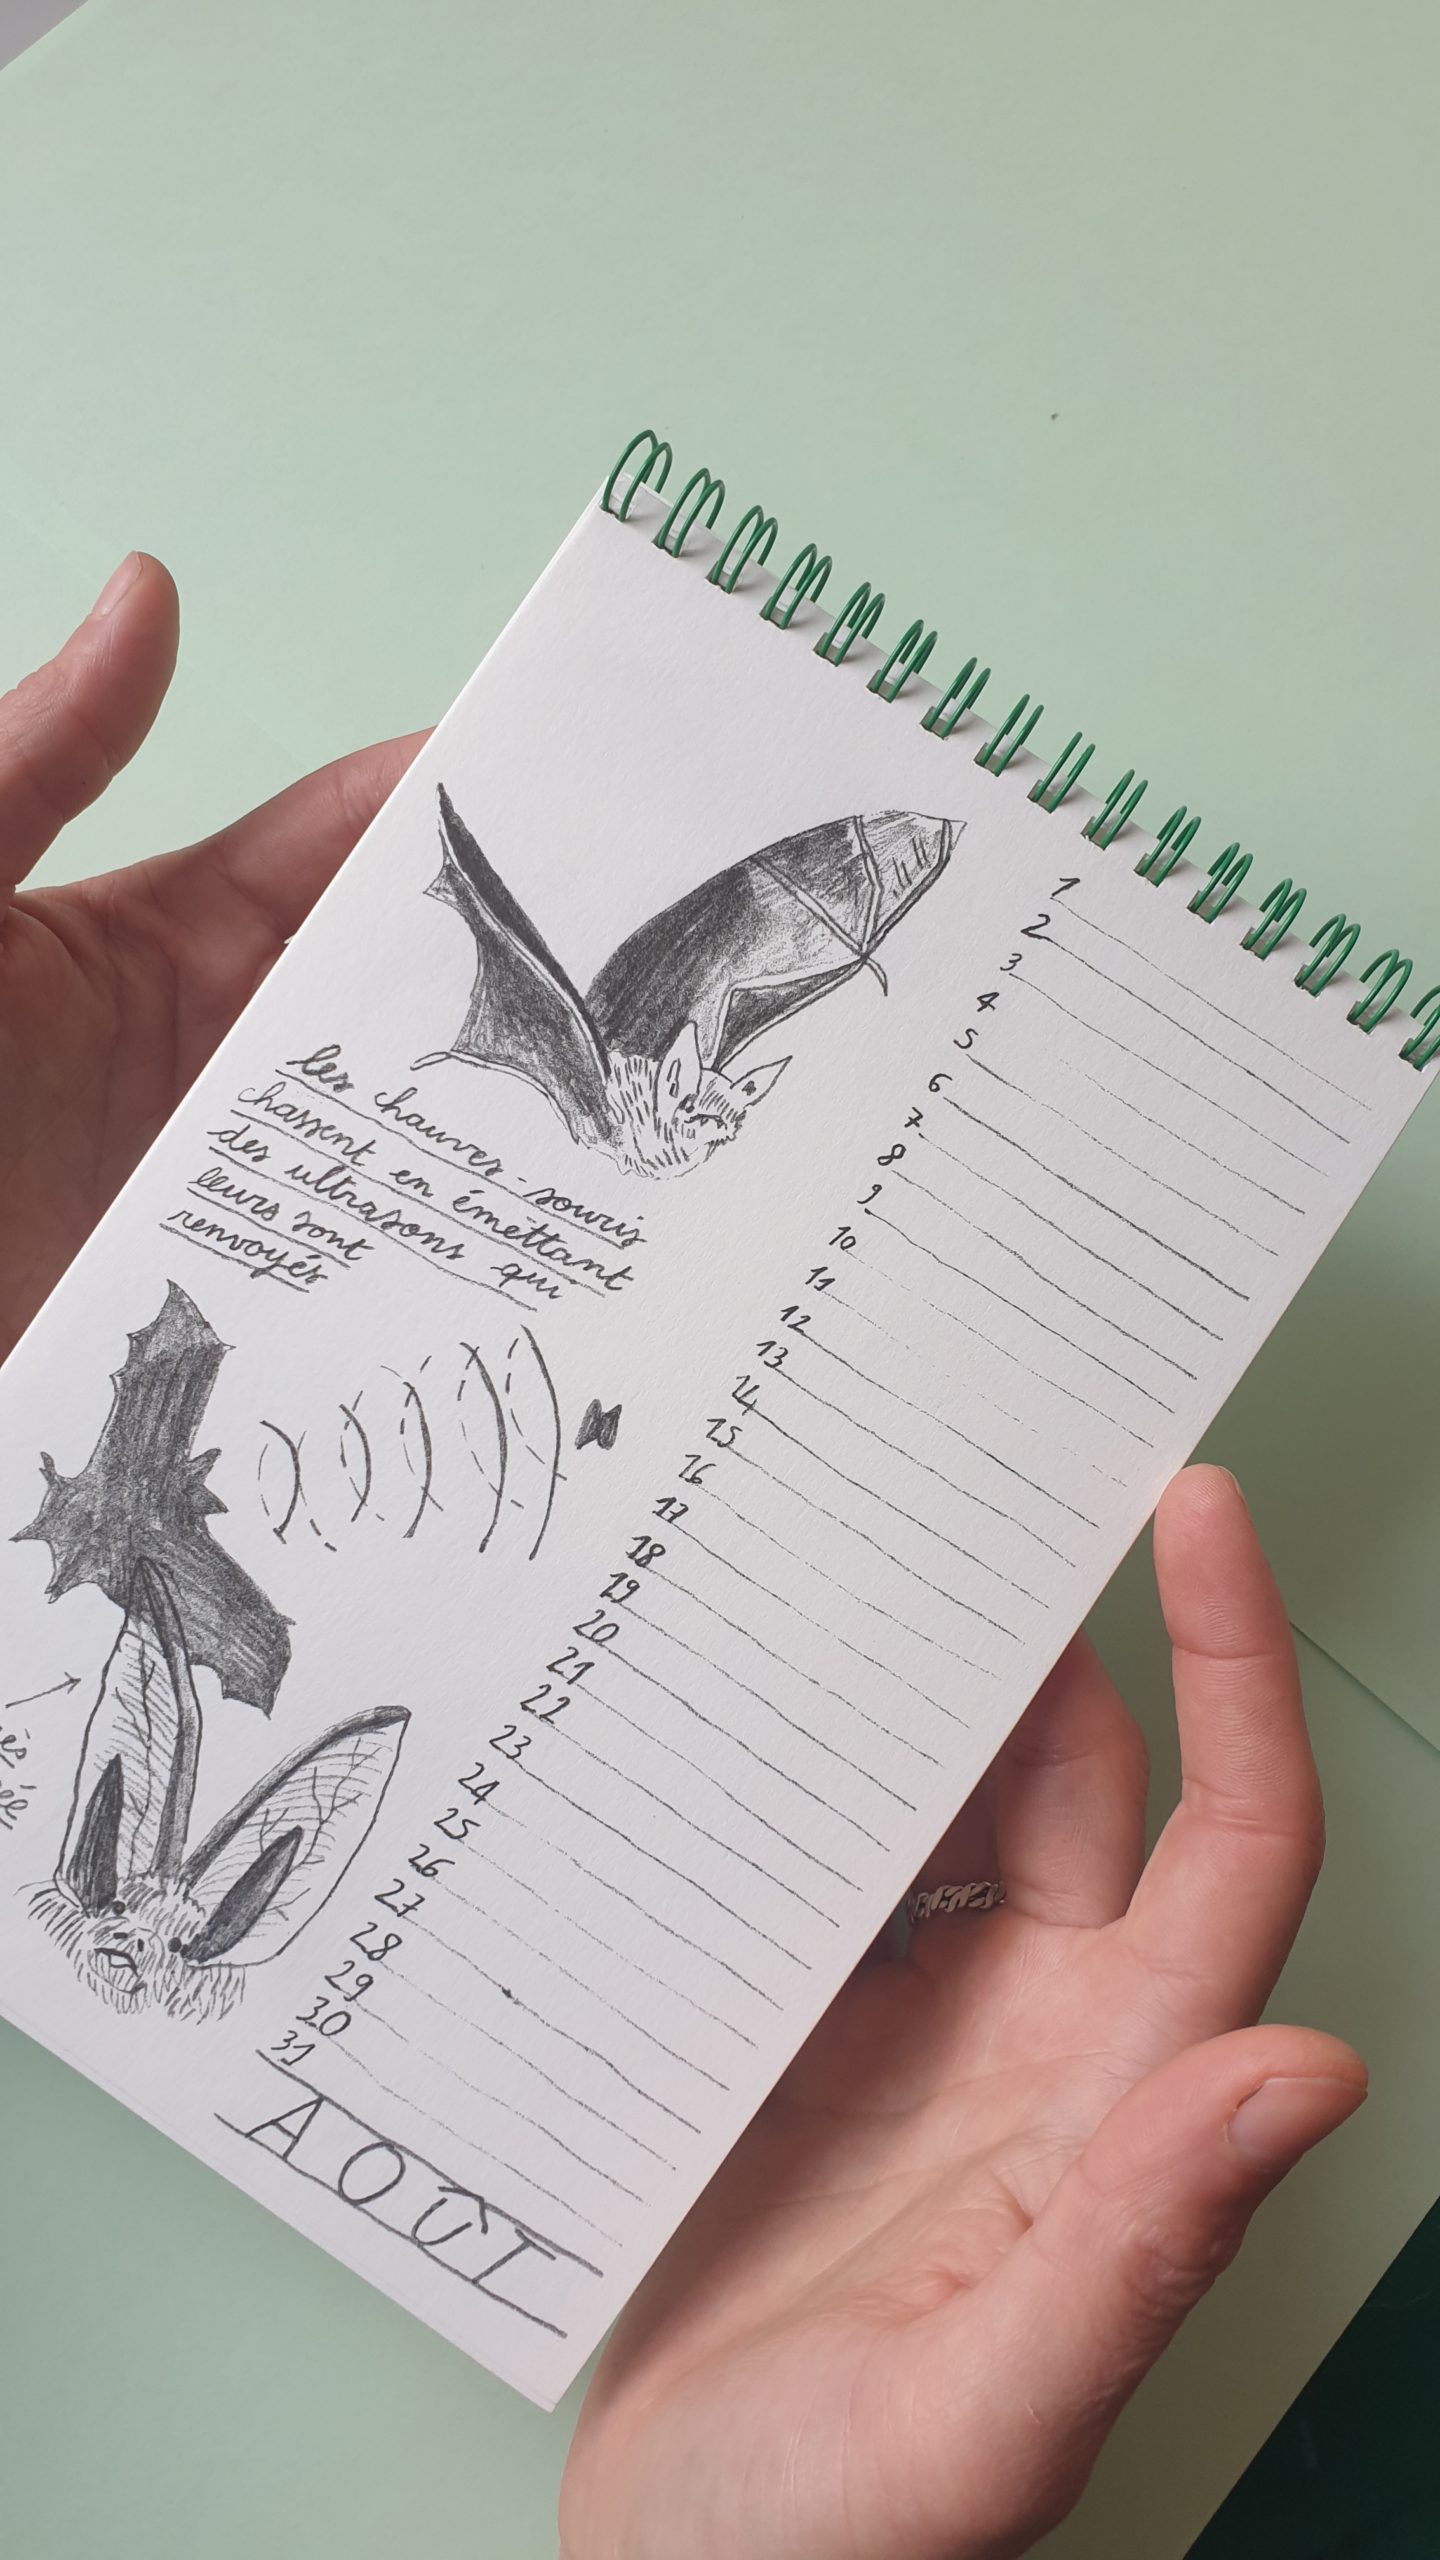 les chauves-souris
chassent en émettant
des ultrasons qui
leurs sont
renvoyés
1
2
3
4
5
6
7
8
9
10
11
12
13
14
15
16
17
18
19
20
21
22
23
24
25
26
27
28
29
30
31
AOÛT